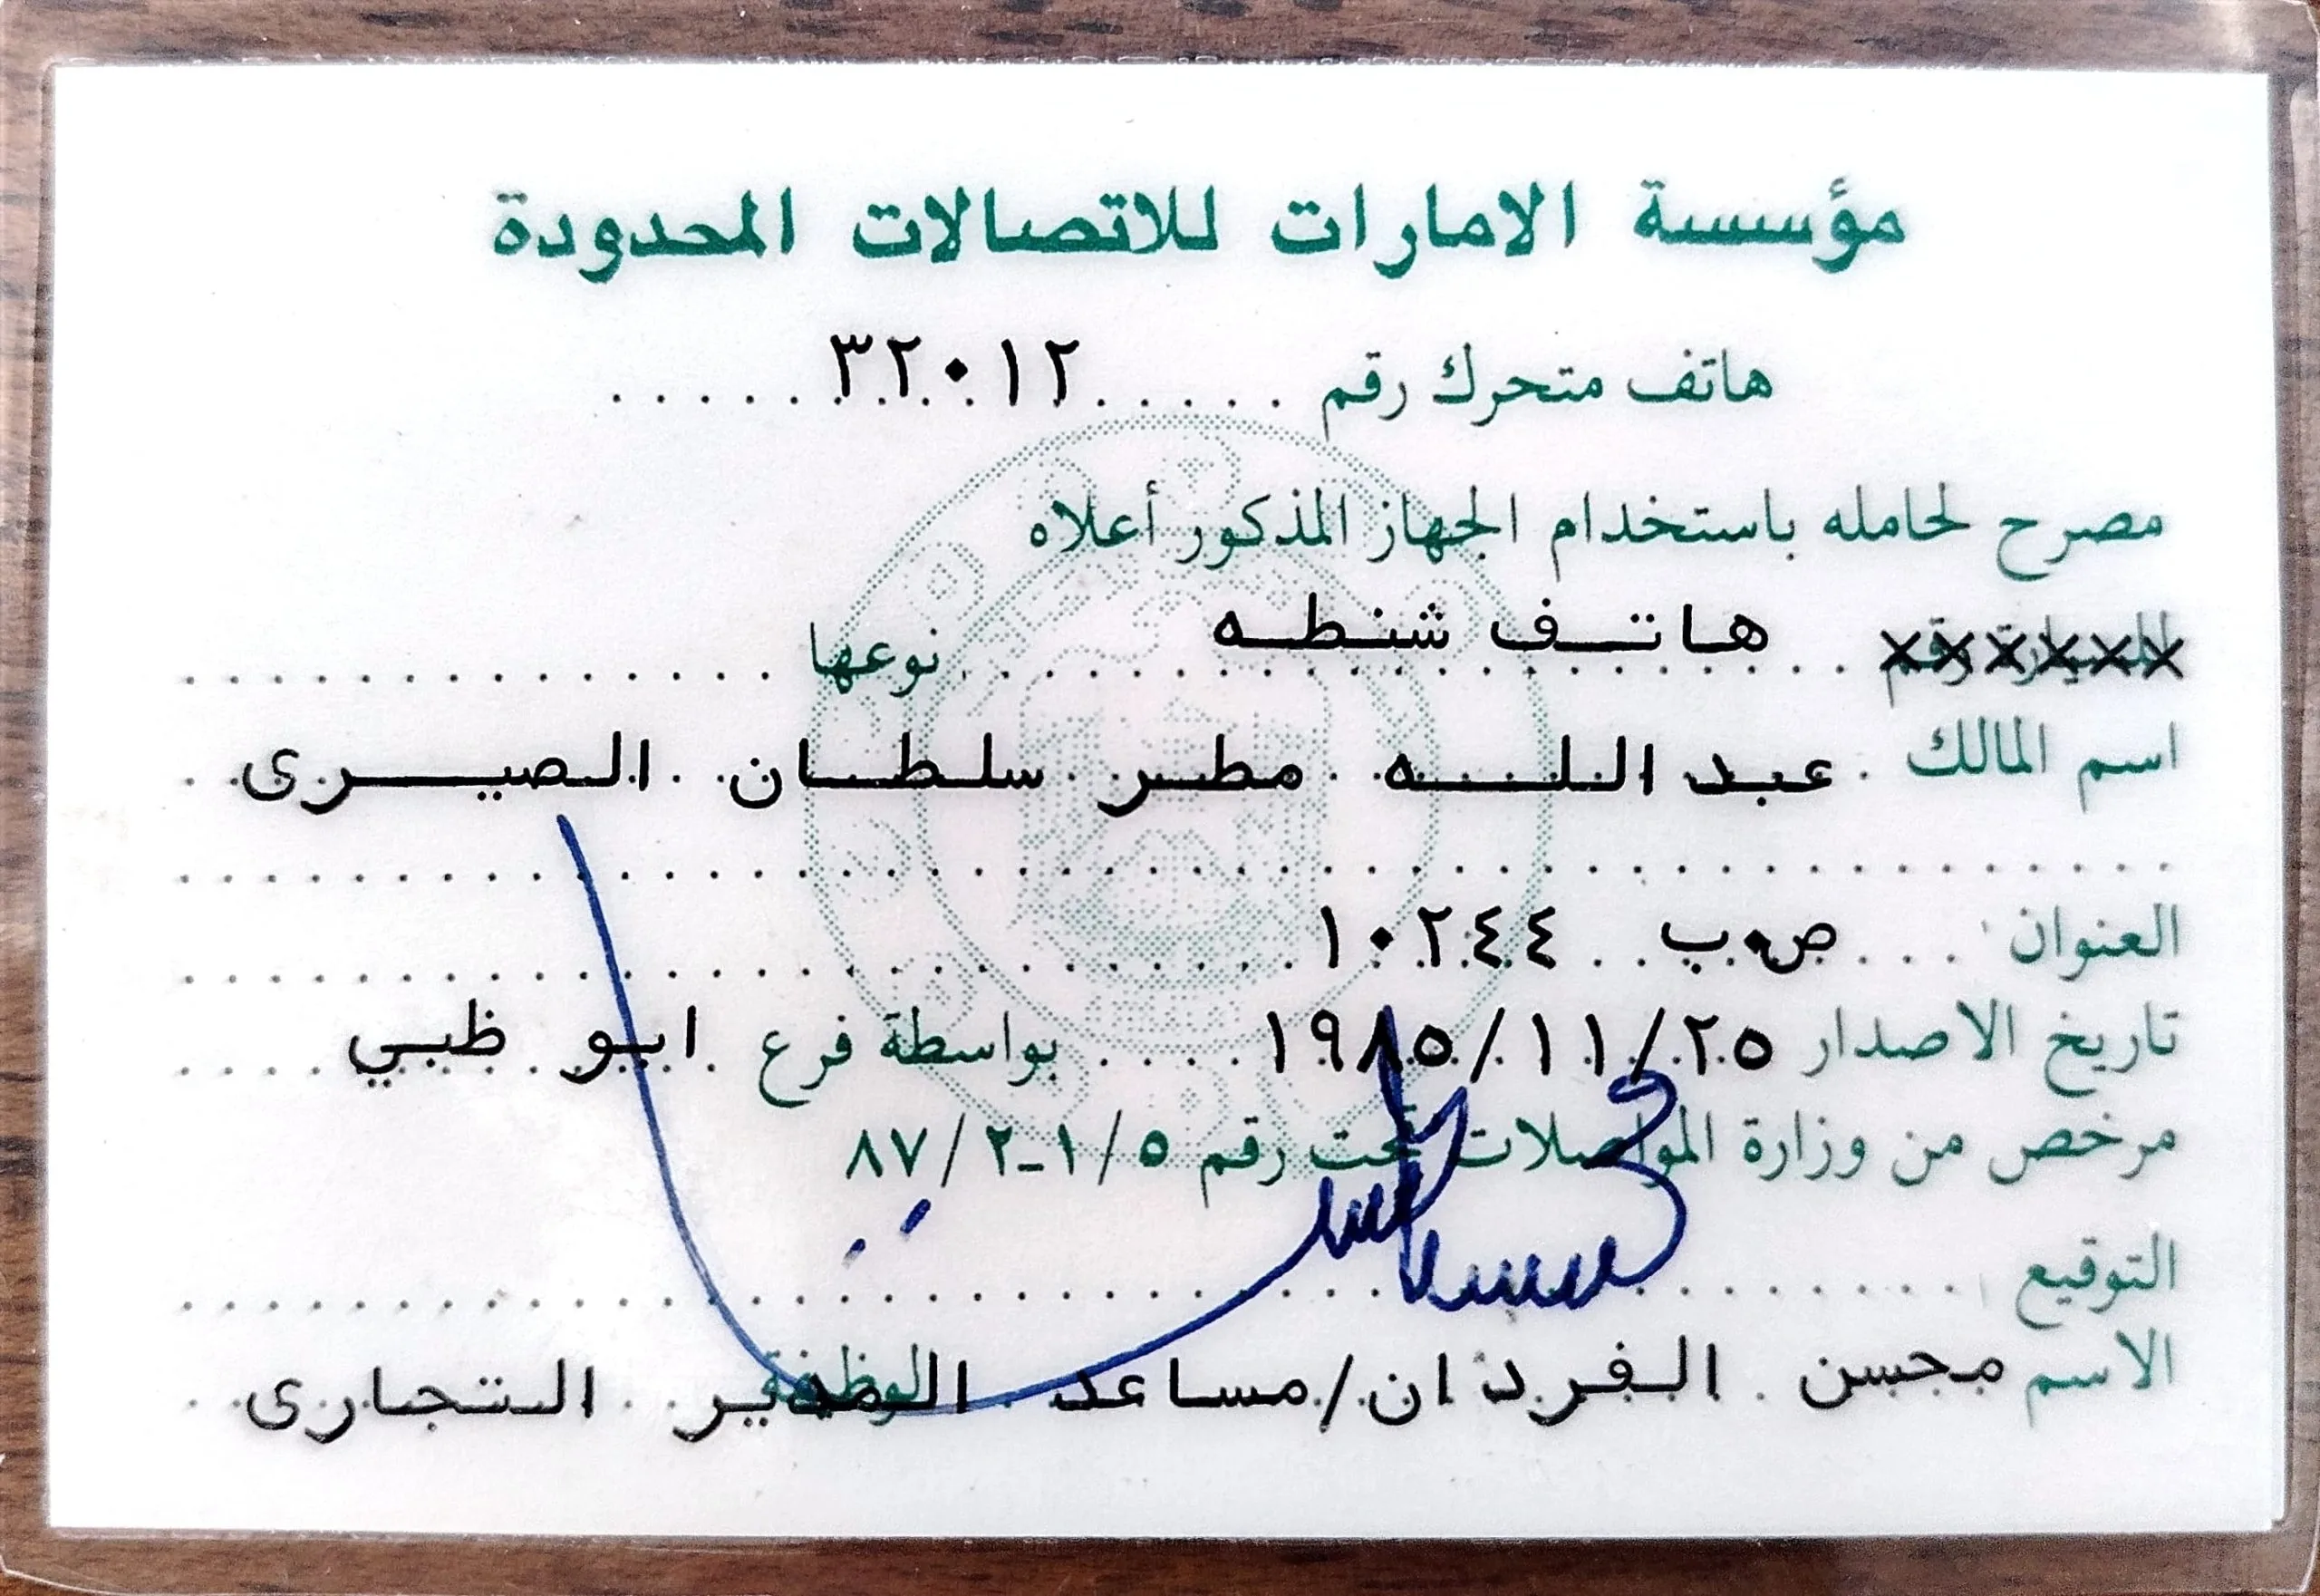 مؤسسة الامارات للاتصالات المحدودة
هاتف متحرك رقم ٣٢٠١٢
مصرح لحامله باستخدام الجهاز المذكور أعلاه
السيارة رقم هاتف شنطه نوعها
اسم المالك عبد الله مطر سلطان الصيرى
العنوان ص٠ب ١٠٢٤٤
تاريخ الاصدار ١٩٨٥/١١/٢٥ بواسطة فرع ابو ظبي
مرخص من وزارة المواصلات تحت رقم ٨٧/٢-١/٥
التوقيع
الاسم محسن الفردان/مساعد المدير التجارى الوظيفة